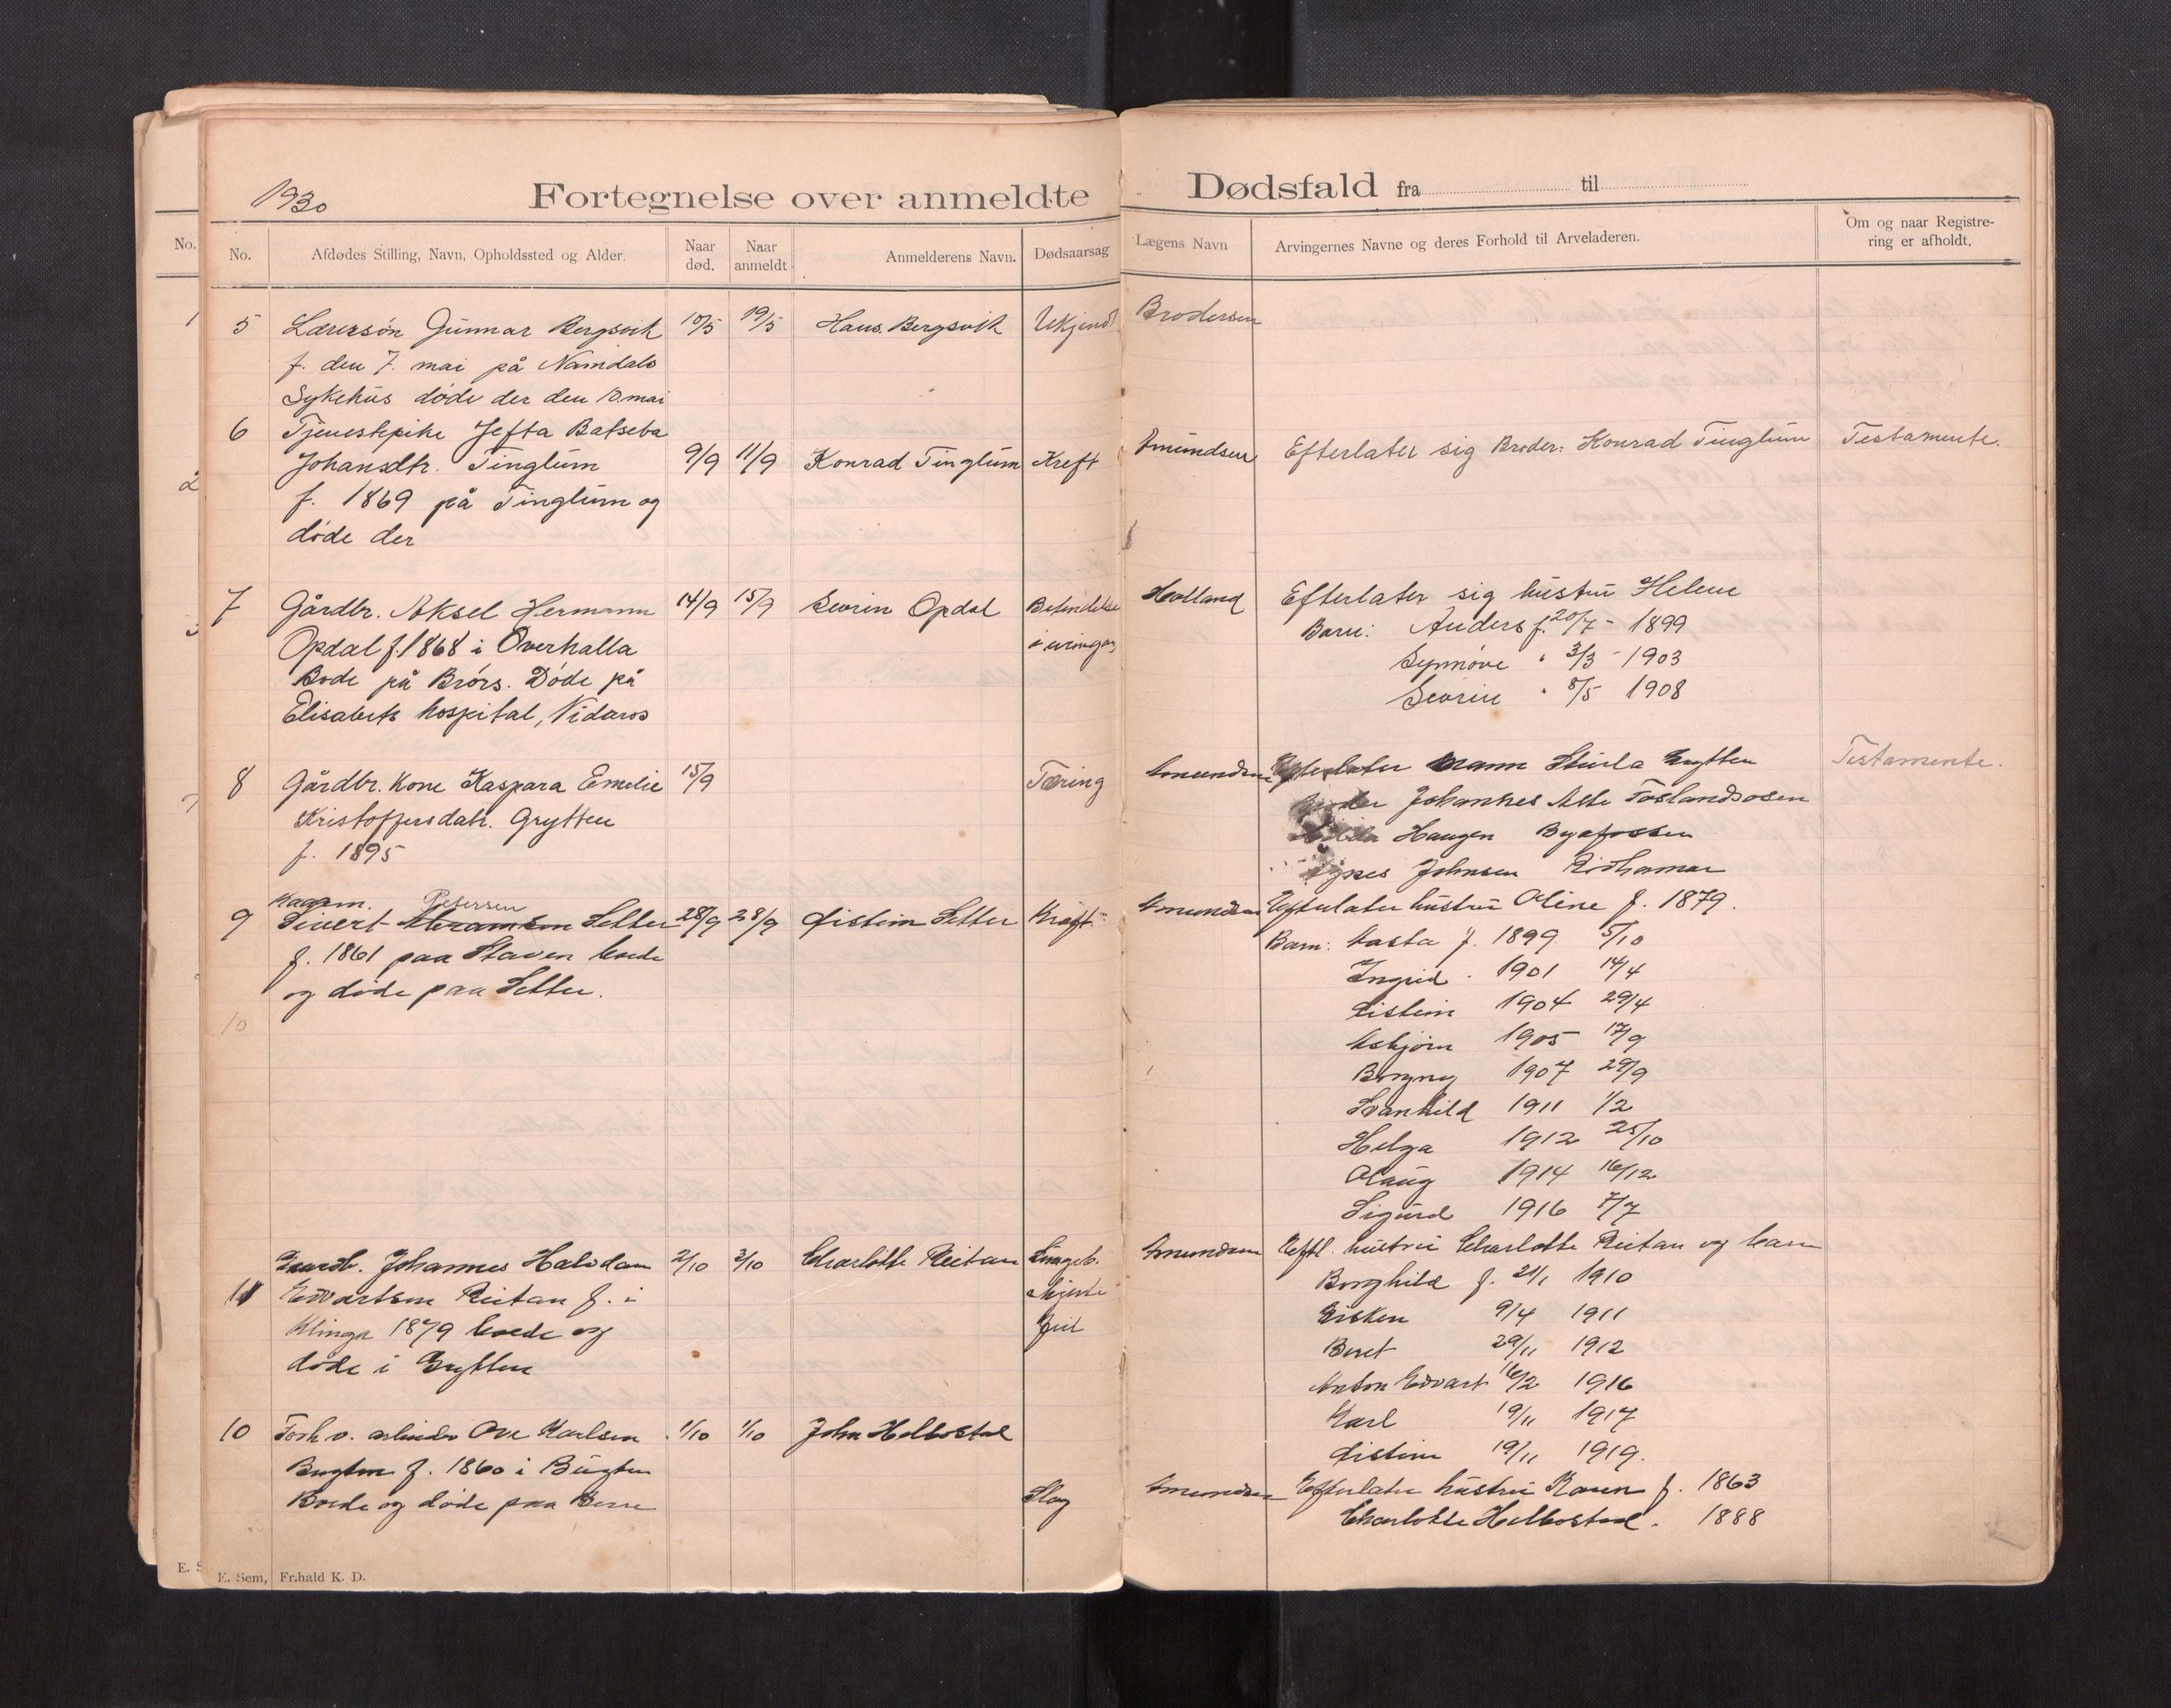 1930
Fortegnelse over anmeldte Dødsfald fra til
No. Afdødes Stilling, Navn, Opholdssted og Alder. Naar død. Naar anmeldt Anmelderens Navn. Dødsaarsag Lægens Navn Arvingernes Navne og deres Forhold til Arveladeren. Om og naar Registrering er afholdt.
5 Lærersøn Gunnar Bergsvik 10/5 19/5 Hans Bergsvik Ukjendt Brodersen
f. den 7. mai på Namdals
Sykehus døde der den 10. mai
6 Tjenestepike Jefta Batseba
Johansdtr. Tinglum 9/9 11/9 Konrad Tinglum Kreft Amundsen Efterlater sig Broder: Konrad Tinglum Testamente.
f. 1869 på Tinglum og
døde der
7 Gårdbr. Aksel Hermann 14/9 15/9 Sevrin Opdal Betendelse Holland Efterlater sig hustru Helene
Opdal f. 1868 i Overhalla Barn: Anders f. 20/7 - 1899
Bode på Brørs. Døde på Synnøve " 3/3 - 1903
Elisabets hospital, Nidaros Sevrin " 8/5 1908
8 Gårdbr. Kone Kaspara Emelie 15/9 Tæring Amundsen Efterlater Mann Sturla Grytten Testamente.
Kristoffersdatr. Grytten Johannes
f. 1895 Haugen
Johnsen
9 Kaarm. Petersen
Sivert Abramsen Setter 28/9 28/9 Øistein Setter Kræft Amundsen Efterlater hustru Oline f. 1879.
f. 1861 paa Staven boede Barn: Aasta f. 1899 5/10
og døde paa Setter. Ingrid 1901 14/4
10 Øistein 1904 29/4
Asbjørn 1905 17/9
Borgny 1907 29/9
Svanhild 1911 1/2
Helga 1912 25/10
Olaug 1914 16/12
Sigurd 1916 7/7
11 Gaardb. Johannes Halvdan 2/10 3/10 Charlotte Reitan Amundsen Eftl. hustru Charlotte Reitan og barn
Edvartsen Reitan f. i Borghild f. 1910
Klinga 1879 boede og Feil 9/4 1911
døde i Grytten Beret 29/11 1912
Anton Edvart 16/2 1916
Karl 19/11 1917
Øistein 19/11 1919.
10 Forh v. arbeider Ove Karlsen 1/10 1/10 John Helbostad
Bugten f. 1860 i Bugten
Boede og døde paa Slag Amundsen Efterlater hustru Karen f. 1863
Charlotte Helbostad. 1888
E. Sem, Fr.hald K. D.